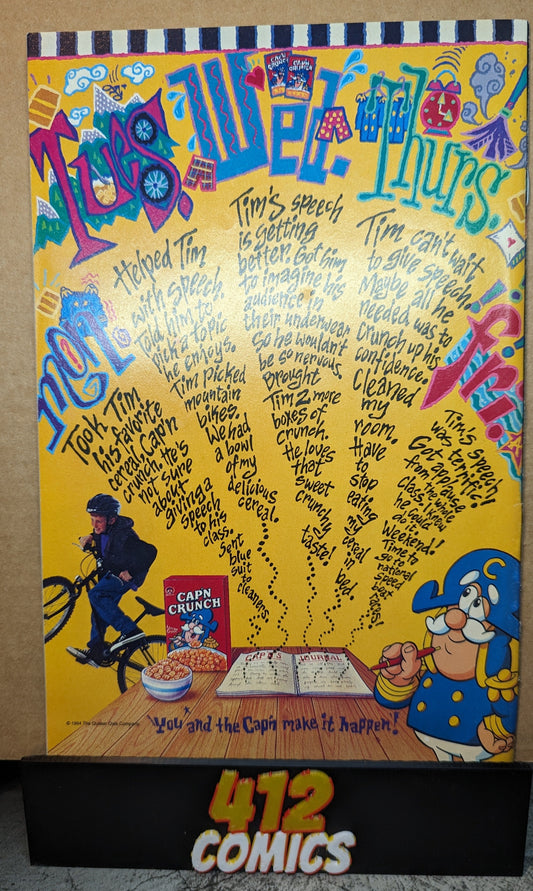 Mon.
Tues.
Wed.
Thurs.
Fri.
CAP'N
CRUNCH
CAP'N
CRUNCH
Took Tim
his favorite
cereal, Cap'n
Crunch. He's
not sure
about
giving a
speech
to his
class.
Sent
blue
suit
to
cleaners.
Helped Tim
with speech.
Told him to
pick a topic
he enjoys.
Tim picked
mountain
bikes.
We had
a bowl
of my
delicious
cereal.
Tim's speech
is getting
better. Got him
to imagine his
audience in
their underwear
So he wouldn't
be so nervous.
Brought
Tim 2 more
boxes of
Crunch.
He loves
that
sweet
crunchy
taste!
Tim can't wait
to give speech.
Maybe all he
needed was to
crunch up his
confidence.
Cleaned
my
room.
Have
to
stop
eating
my
cereal
in
bed.
Tim's speech
was terrific!
Got applause
from the whole
class. I knew
he could
do it!
Weekend!
Time to
go to
national
speed
boat
races!
CAPN
CRUNCH
CAP'N'S JOURNAL
© 1994 The Quaker Oats Company
You and the Cap'n make it happen!
412
COMICS